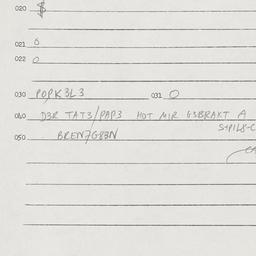 020 $
021 0
022 0
030 POPK3L3 031 0
040 D3R TAT3/PAP3 HOT MIR G3BRAKT A
S+PIL8-C
050 BREN7G83N